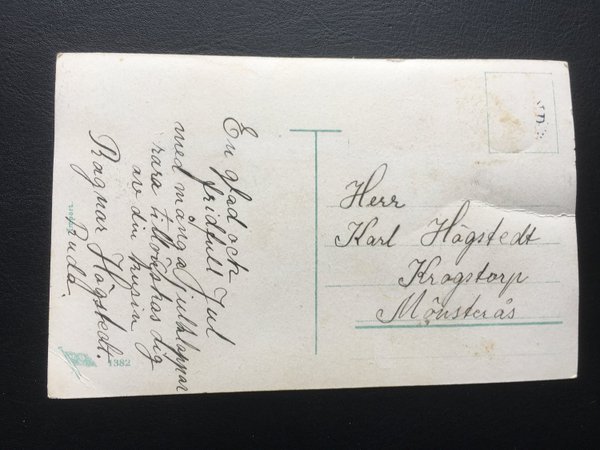 En glad och
fridfull Jul
med många julklappar
rara tillönskas dig
av din kusin
Ragnar Högstedt.
Ruda.
Herr
Karl Högstedt
Krogstorp
Mönsterås
1382